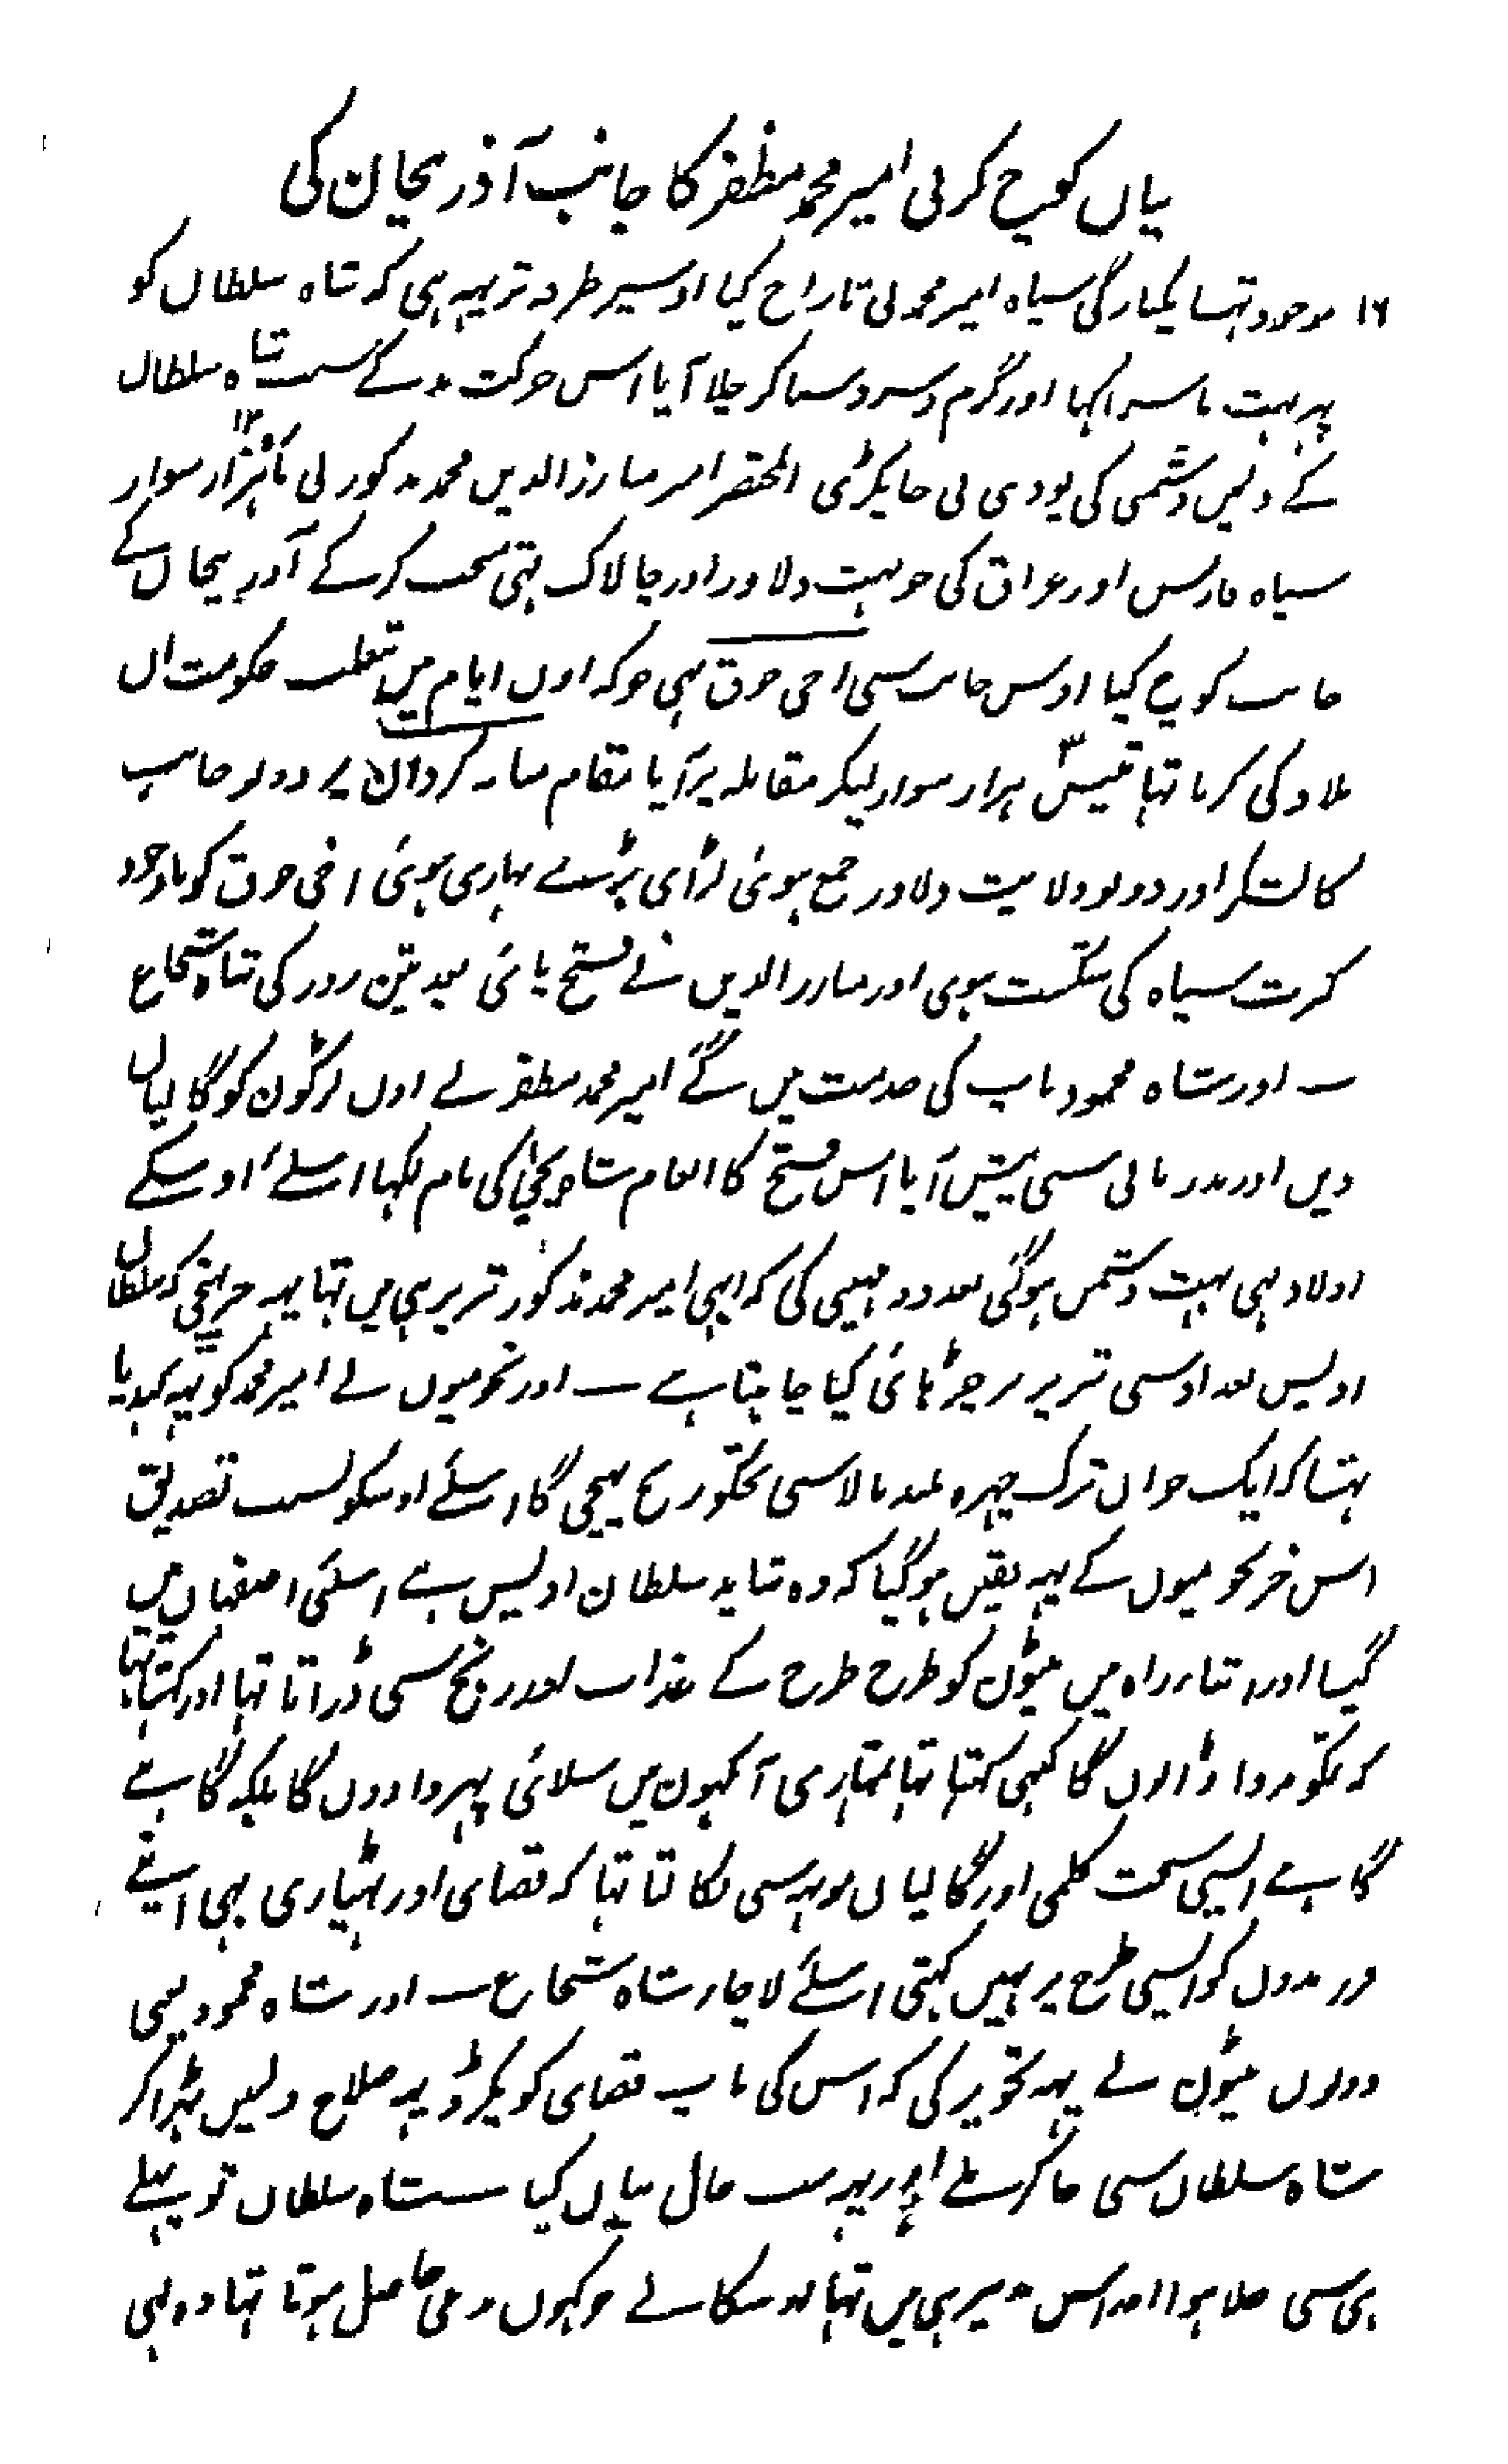 بیان کوچ کرنی امیر محمد مظفر کا جانب آذربیجان کی
۱۶ موجود تہا یکبارگی سپاہ امیر محمد نی تاراج کیا اوسپر طرہ تر یہہ ہی کہ شاہ سلطان کو
پہر بہت ناسزا کہا اور گرم وسرد سنا کر چلا آیا اس حرکت بد کے سبب شاہ سلطان
کے دلمیں دشمنی کی پودی نی جا پکڑی المختصر امیر مبارز الدین محمد مذکور نی ۱۲ ہزار سوار
سپاہ فارس اور عراق کی جو بہت دلاور اور چالاک تہی منتخب کرکے آذربیجان کے
جانب کوچ کیا اوس جانب سی اخی جوق بہی جو کہ اون ایام میں بتغلب حکومت ان
بلاد کی کرتا تہا تیس ہزار سوار لیکر مقابلہ پر آیا مقام میانہ کردان پر دونو جانب
کا لشکر اور دونو ولایت دلاور جمع ہوئی لڑائی بڑے بہاری ہوئی اخی جوق کو باوجود
کثرت سپاہ کی شکست ہوی اور مبارز الدین نے فتح پائی بعد تین روز کی شاہ شجاع
ـ اور شاہ محمود باپ کی خدمت میں گے امیر محمد مظفر نے اون لڑکون کو گالیان
دیں اور بدزبانی سی پیش آیا اس فتح کا انعام شاہ یحیی کی نام لکہا اسلئے اوسکے
اولاد بہی بہت دشمن ہوگئی بعد دو مہینی کی کہ ابہی امیر محمد مذکور تبریز ہی میں تہا یہہ خبر پہنچی کہ سلطان
اویس بغداد سی تبریز پر چڑہائی کیا چاہتا ہے ـ اور نجومیوں نے امیر محمد کو یہہ کہدیا
تہا کہ ایک جوان ترک چہرہ بلند بالا سی تجکو رنج پہنچی گا اسلئے اوسکو بسبب تصدیق
اس خبر نجومیوں کے یہہ یقین ہوگیا کہ وہ شاید سلطان اویس ہے اسلئی اصفہان میں
گیا اور اثناء راہ میں بیٹون کو طرح طرح کے عذاب اور رنج سی ڈراتا تہا اور کہتا تہا
کہ تمکو مروا ڈالوں گا کبہی کہتا تہا تمہاری آنکہون میں سلائی پہروا دوں گا بلکہ گاہے
گاہے ایسی سخت کلمی اور گالیاں مونہہ سی نکالتا تہا کہ قصای اور بہٹیاری بہی اپنے
فرزندوں کو ایسی طرح پر نہیں کہتی اسلئے لاچار شاہ شجاع ـ اور شاہ محمود یعنی
دونوں بیٹون نے یہہ تجویز کی کہ اس کی باپ قصای کو پکڑو یہہ صلاح دلمیں ٹہرا کر
شاہ سلطان سی جاکر ملے اور یہہ سب حال بیاں کیا ـ شاہ سلطان تو پہلے
ہی سی جلا ہوا اور اس تدبیر ہی میں تہا